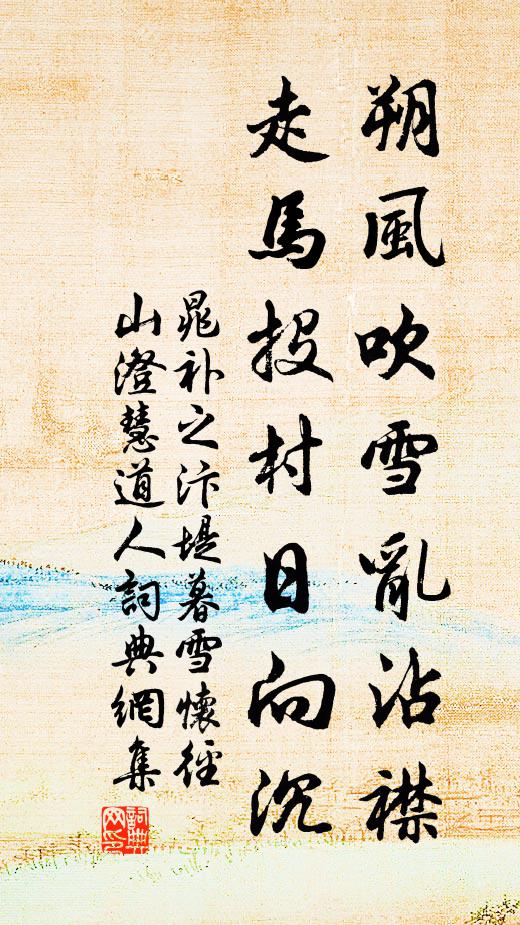 朔風吹雪亂沾襟
走馬投村日向沉
晁補之汴堤暮雪懷徑
山澄慧道人詞典網集
詞典網印